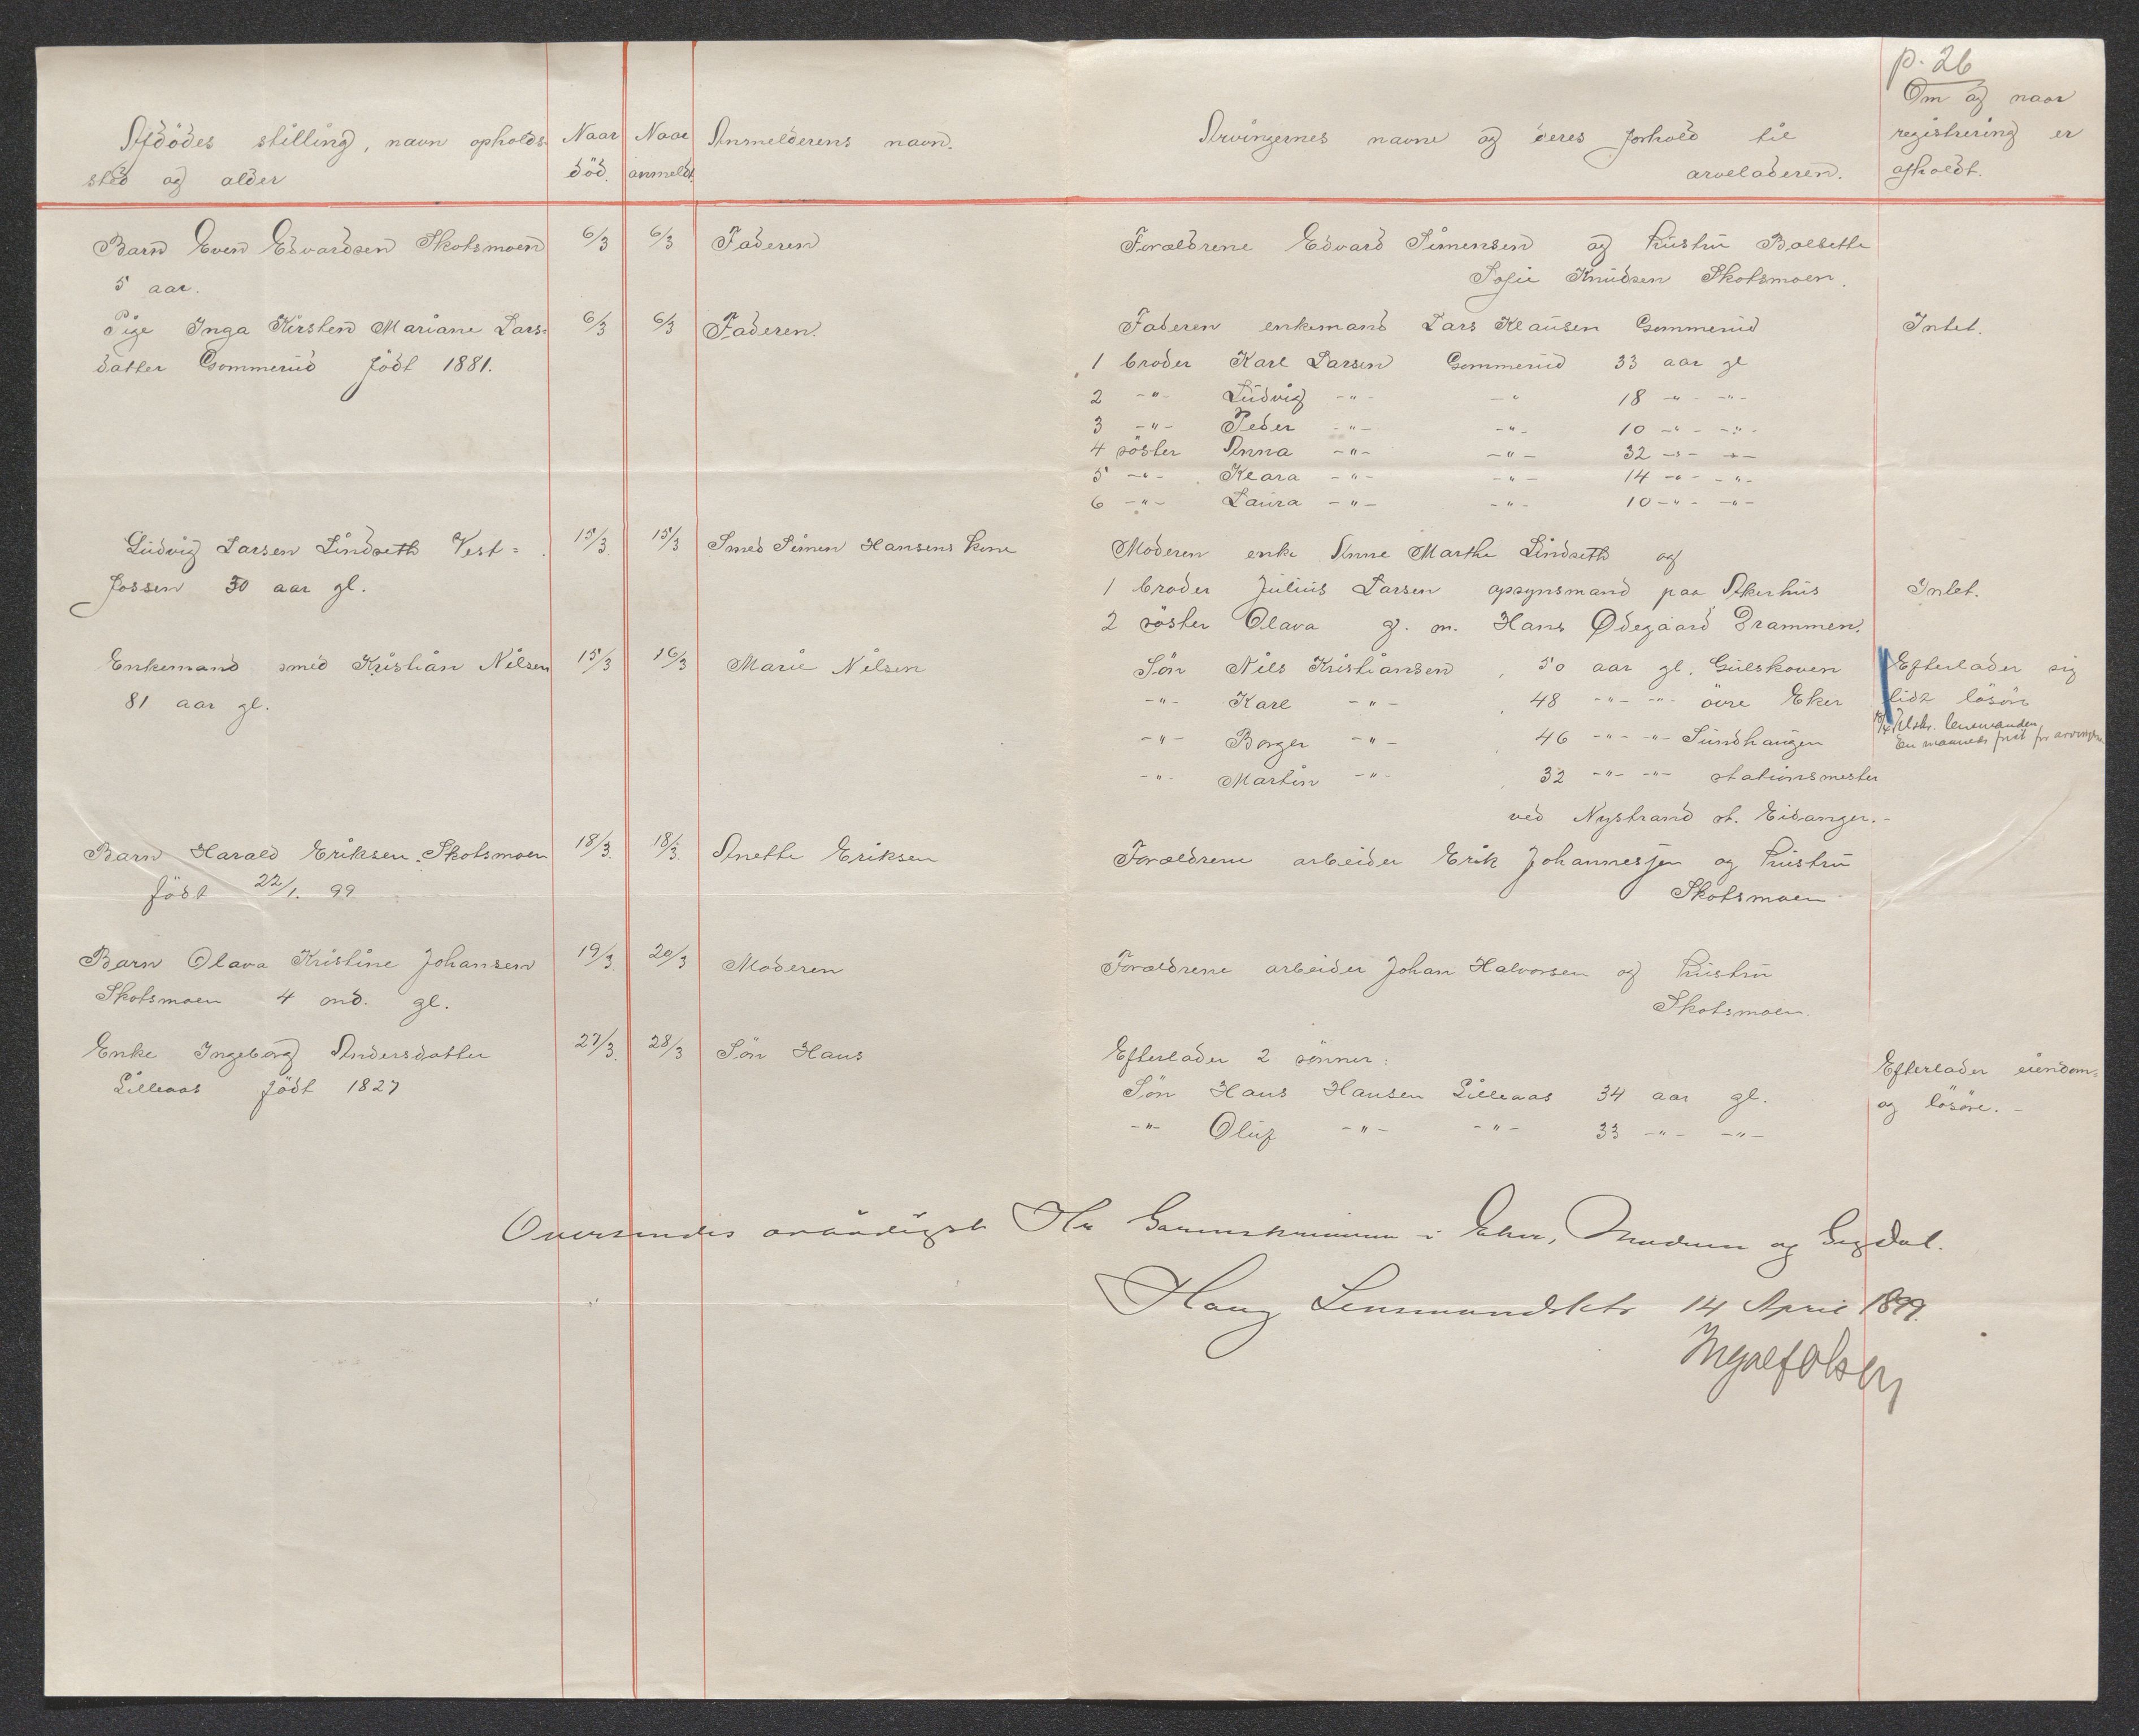 p. 26
Afdödes stilling, navn opholds- Naar Naar Anmelderens navn. Arvingernes navne og deres forhold til Om og naar
sted og alder död. anmeldt. arveladeren. registrering er
afholdt.
Barn Even Edvardsen Skotsmoen 6/3 6/3 Faderen Forældrene Edvard Simensen og hustru Bolette
5 aar. Sofie Knudsen Skotsmoen.
Pige Inga Kirsten Mariane Lars- 6/3 6/3 Faderen. Faderen enkemand Lars Klausen Gommerud Intet.
datter Gommerud födt 1881. 1 broder Karl Larsen Gommerud 33 aar gl
2 -"- Ludvig -"- -"- 18 -"- -"-
3 -"- Peder -"- -"- 10 -"- -"-
4 söster Anna -"- -"- 32 -"- -"-
5 -"- Klara -"- -"- 14 -"- -"-
6 -"- Laura -"- -"- 10 -"- -"-
Ludvig Larsen Lindseth Vest= 15/3. 15/3 Smed Simen Hansens kone Moderen enke Anne Marthe Lindseth og
fossen 30 aar gl. 1 broder Julius Larsen opsynsmand paa Akerhus Intet.
2 söster Olava g. m. Hans Ødegaard Drammen.
Enkemand smed Kristian Nilsen 15/3 16/3 Marie Nilsen Sön Nils Kristiansen, 50 aar gl. Gulskoven Efterlader sig
81 aar gl. -"- Karl -"- , 48 -"- -"- övre Eker lidt lösöre
-"- Borger -"- , 46 -"- -"- Sundhaugen lensmanden
En maaneds frist for arvingerne
-"- Martin -"- , 32 -"- -"- stationsmester
ved Nystrand st. Eidanger.-
Barn Harald Eriksen Skotsmoen 18/3. 18/3. Anette Eriksen Forældrene arbeider Erik Johannessen og hustru
födt 22/1. 99 Skotsmoen
Barn Olava Kristine Johansen 19/3. 20/3 Moderen Forældrene arbeider Johan Halvorsen og hustru
Skotsmoen 4 md. gl. Skotsmoen.
Enke Ingeborg Andersdatter 27/3. 28/3 Sön Hans Efterlader 2 sönner: Efterlader eiendom=
Lilleaas födt 1827 Sön Hans Hansen Lilleaas 34 aar gl. og lösöre.-
-"- Oluf -"- -"- 33 -"- -"-
Oversendes ærbødigst Hr Sorenskriveren i Eker, Modum og Sigdal.
Haug Lensmandsktr 14 April 1899.
Ingolf Olsen